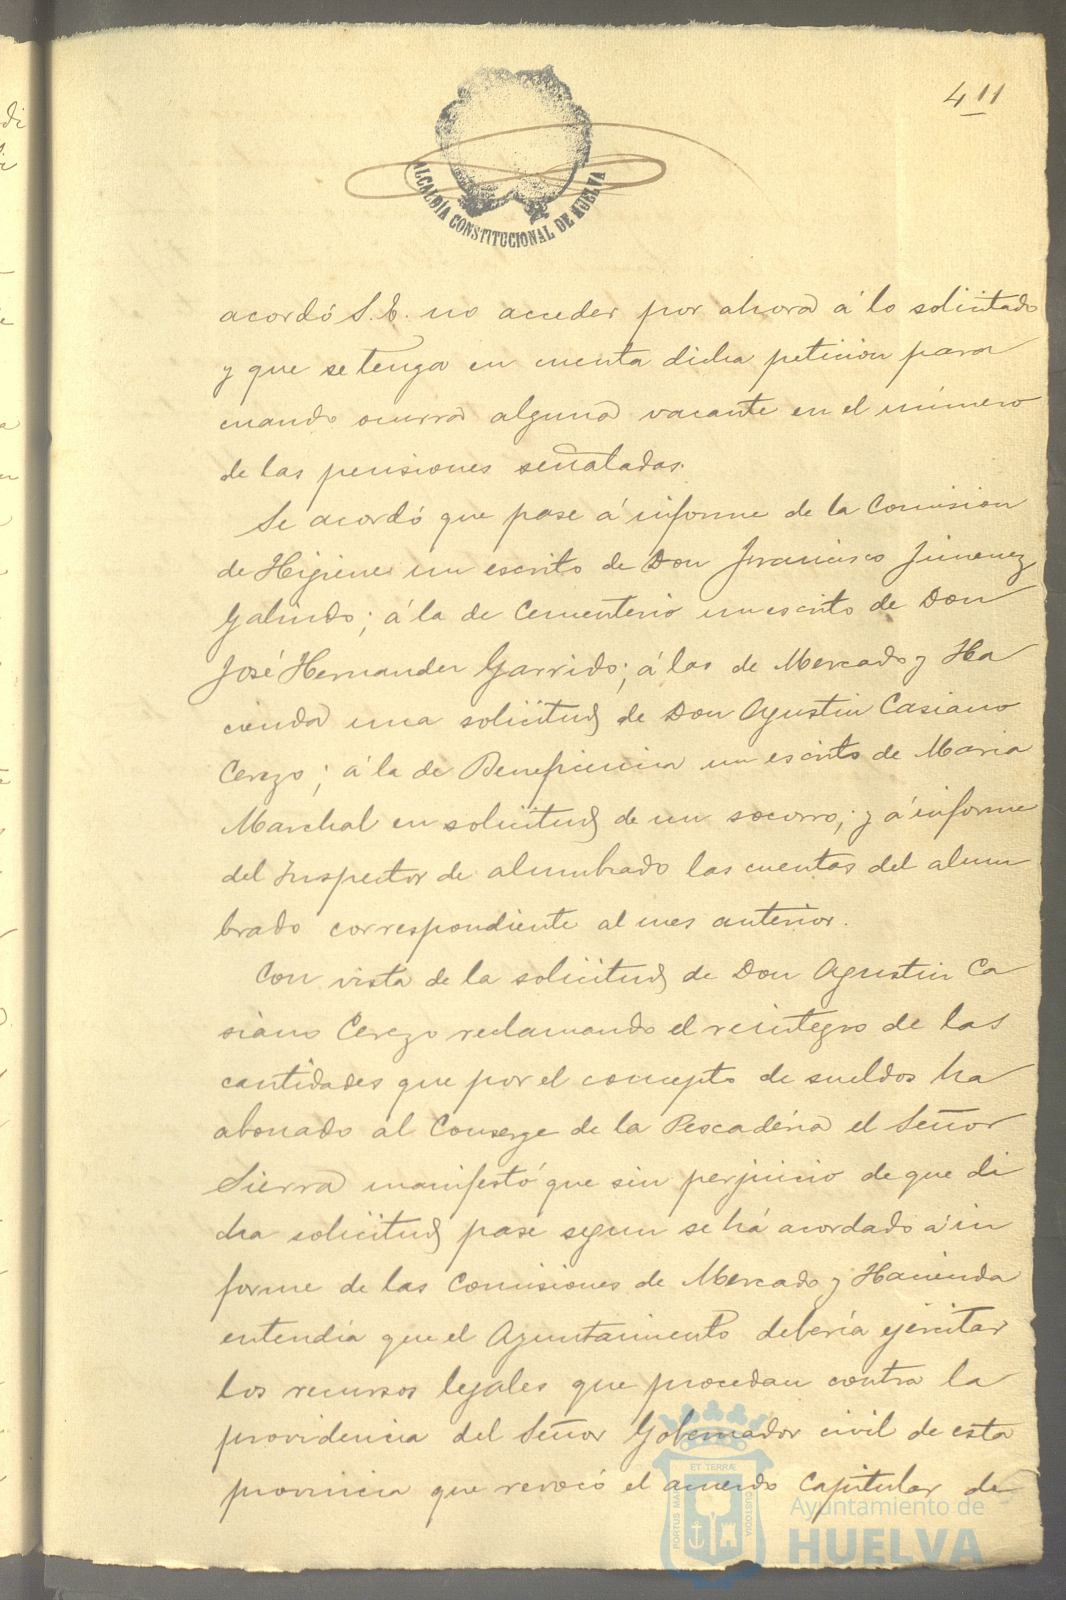 411
ALCALDÍA CONSTITUCIONAL DE HUELVA
acordó S.E. no acceder por ahora á lo solicitado
y que se tenga en cuenta dicha peticion para
cuando ocurra alguna vacante en el número
de las pensiones señaladas.
Se acordó que pase á informe de la Comision
de Higiene un escrito de Don Francisco Jimenez
Galindo; á la de Cementerio un escrito de Don
José Hernandez Garrido; á las de Mercado y Ha
cienda una solicitud de Don Agustin Casiano
Cerezo; á la de Beneficencia un escrito de Maria
Marchal en solicitud de un socorro; y á informe
del Inspector de alumbrado las cuentas del alum
brado correspondiente al mes anterior.
Con vista de la solicitud de Don Agustin Ca
siano Cerezo reclamando el reintegro de las
cantidades que por el concepto de sueldos ha
abonado al Conserge de la Pescadéria el Señor
Sierra manifestó que sin perjuicio de que di
cha solicitud pase segun se há acordado á in
forme de las Comisiones de Mercado y Hacienda
entendia que el Ayuntamiento debería ejercitar
los recursos legales que procedan contra la
providencia del Señor Gobernador civil de esta
provincia que revocó el acuerdo capitular de
PORTUS MARIS ET TERRÆ CUSTODIA
Ayuntamiento de
HUELVA